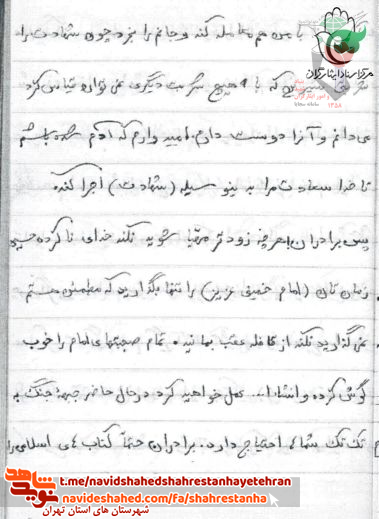 با من هم معامله کند و جانم را بخرد چون شهادت را
شربتی که با هیچ شربت دیگری نمی توان قیاس کرد
می دانم و آنرا دوست دارم. امید وارم که آدم شده باشم
تا خدا سعادت مرا به وسیله (شهادت) اجرا کند
پس برادران هر چه زودتر مهیا شوید نکند خدای نا کرده حسین
زمان تان (امام خمینی عزیز) را تنها بگذارید که مطمئن هستم
نمی گذارید نکند از قافله عقب بمانید. تمام صحبتهای امام را خوب
گوش کرده و انشاا... عمل خواهید کرد در حال حاضر جبهه جنگ به
تک تک شما احتیاج دارد. برادران حتماً کتاب های اسلامی را
مرکز اسناد ایثارگران
۱۳۵۸
نوید شاهد
t.me/navidshahedshahrestanhayetehran
navideshahed.com/fa/shahrestanha
شهرستان های استان تهران